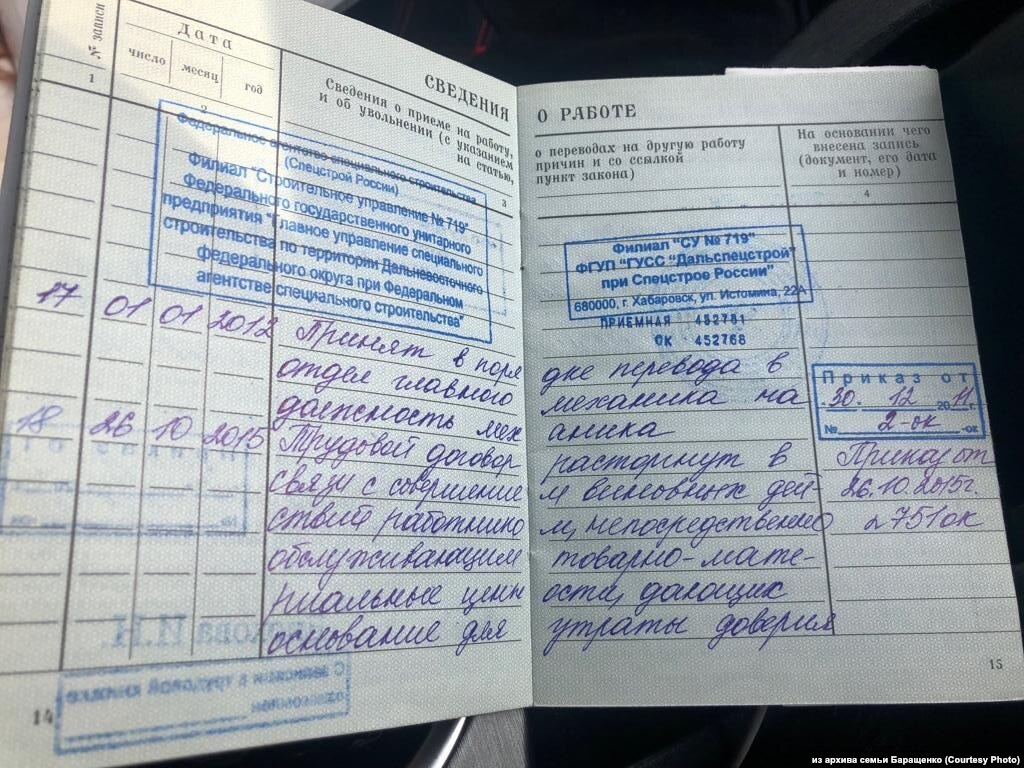 № записи
Дата
число
месяц
год
1
2
СВЕДЕНИЯ
Сведения о приеме на работу,
и об увольнении (с указанием
на статью,
3
О РАБОТЕ
о переводах на другую работу
причин и со ссылкой
пункт закона)
На основании чего
внесена запись
(документ, его дата
и номер)
4
Федеральное агентство специального строительства
(Спецстрой России)
Филиал "Строительное управление № 719"
Федерального государственного унитарного
предприятия "Главное управление специального
строительства по территории Дальневосточного
федерального округа при Федеральном
агентстве специального строительства"
Филиал "СУ № 719"
ФГУП "ГУСС "Дальспецстрой"
при Спецстрое России"
680000, г. Хабаровск, ул. Истомина, 22А
ПРИЕМНАЯ 452781
ОК 452768
17 01 01 2012 Принят в поря дке перевода в
отдел главного механика на
должность мех аника
Приказ от
30. 12 2011г.
№ 2-ок -ок
18 26 10 2015 Трудовой договор расторгнут в Приказ от
связи с совершение м виновных дей- 26.10.2015г.
ствий работнико м, непосредственно 751ок
обслуживающим товарно-мате-
риальные ценн ости, дающих
основание для утраты доверия
14
15
из архива семьи Баращенко (Courtesy Photo)